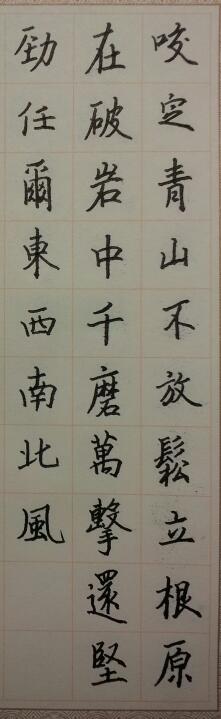 咬定青山不放鬆立根原
在破岩中千磨萬擊還堅
勁任爾東西南北風